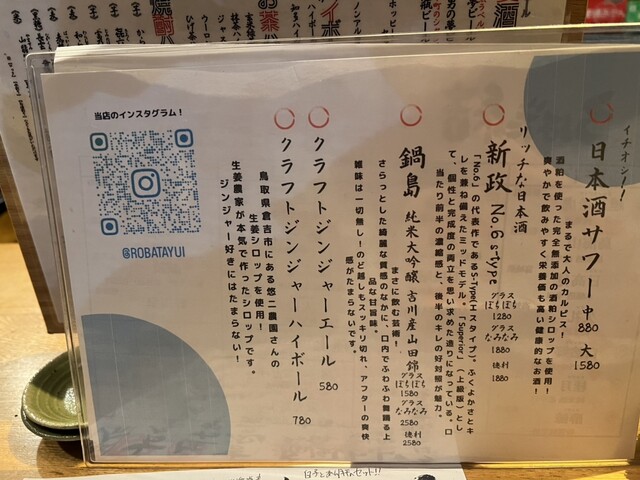 イチオシ！！
日本酒サワー 中 880 大 1580
まるで大人のカルピス！
酒粕を使った完全無添加の酒粕シロップを使用！
爽やかで飲みやすく栄養価も高い健康的なお酒！
リッチな日本酒
新政 No.6 s-type
グラス ぽちぽち 1280
グラス なみなみ 1880
徳利 1880
「No.6」の代表作であるS-Type(エスタイプ)、ふくよかさとキ
レを兼ね備えたミッドモデル。「Superior」（上級版）とし
て、個性と完成度の両立を思い求めた造りになっている。口
当たり前半の濃縮感と、後半のキレの好対照が魅力。
鍋島 純米大吟醸 吉川産山田錦
グラス ぽちぽち 1580
グラス なみなみ 2580
徳利 2580
まさに飲む芸術！
さらっとした綺麗な質感のなかに、口内でふわふわ舞踊る上
品な甘旨味。
雑味は一切無し！のど越しもスッキリ切れ、アフターの爽快
感がたまらないです。
クラフトジンジャーエール 580
クラフトジンジャーハイボール 780
鳥取県倉吉市にある悠二農園さんの
生姜シロップを使用！
生姜農家が本気で作ったシロップです。
ジンジャー好きにはたまらない！
当店のインスタグラム！
@ROBATAYUI